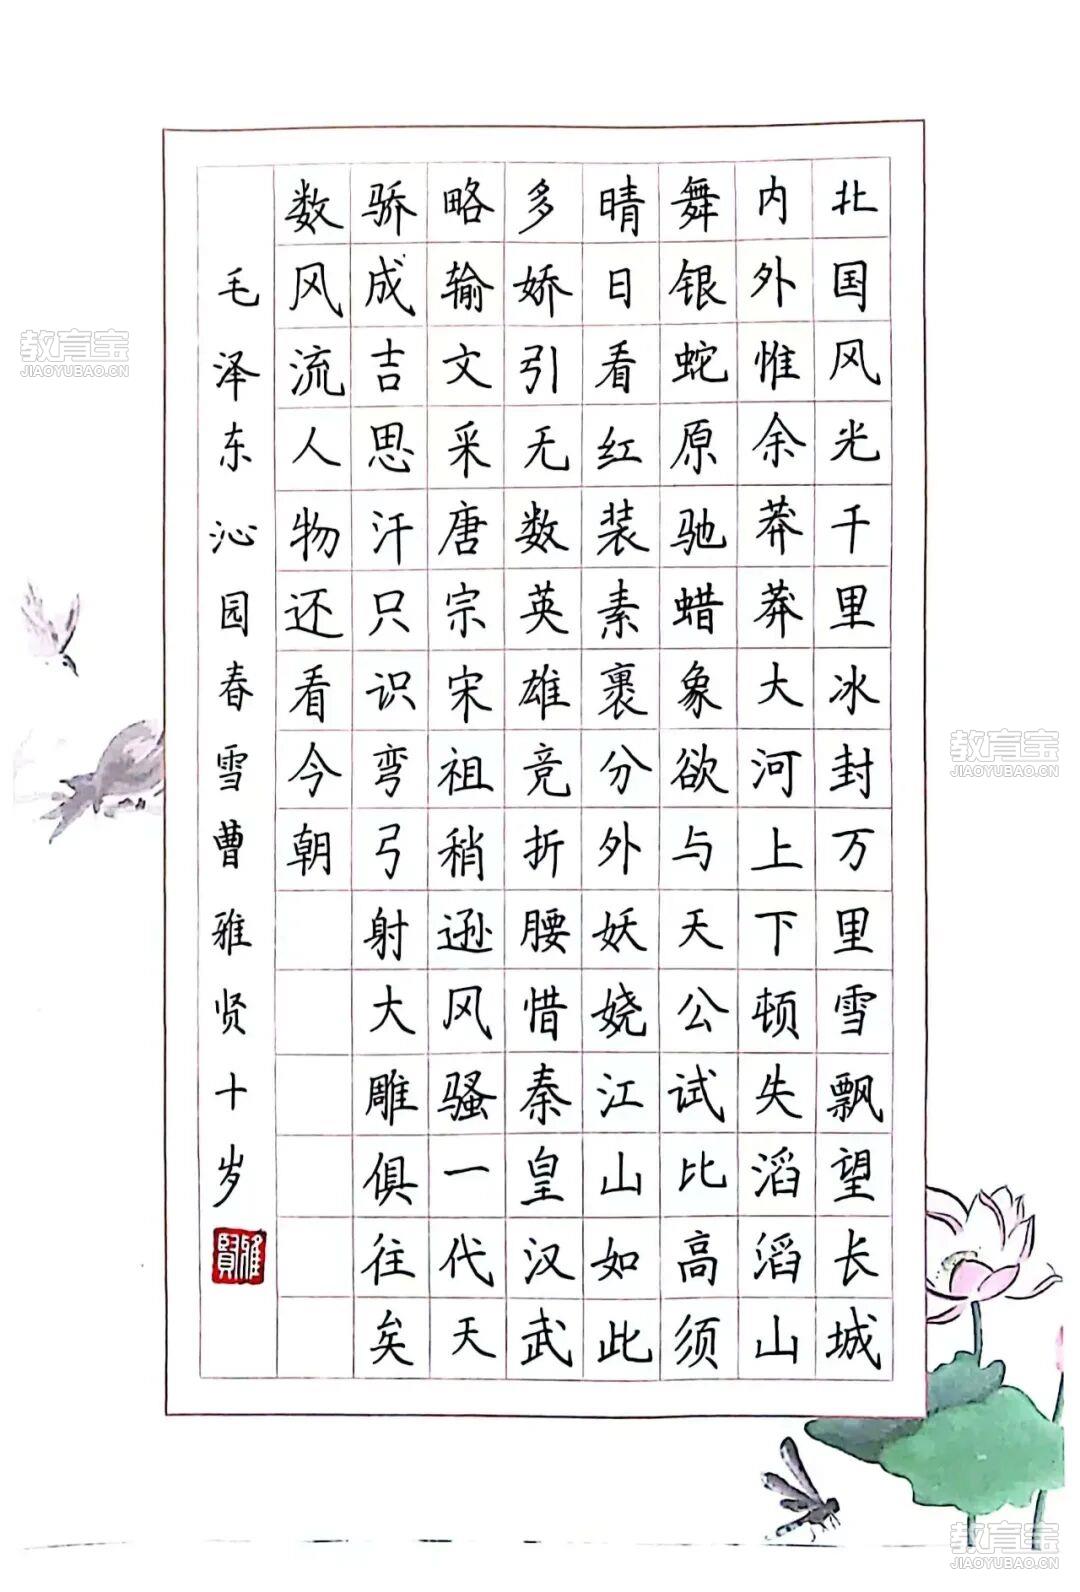 北国风光千里冰封万里雪飘望长城
内外惟余莽莽大河上下顿失滔滔山
舞银蛇原驰蜡象欲与天公试比高须
晴日看红装素裹分外妖娆江山如此
多娇引无数英雄竞折腰惜秦皇汉武
略输文采唐宗宋祖稍逊风骚一代天
骄成吉思汗只识弯弓射大雕俱往矣
数风流人物还看今朝
毛泽东沁园春雪曹雅贤十岁
雅賢
教育宝
JIAOYUBAO.CN
教育宝
JIAOYUBAO.CN
教育宝
JIAOYUBAO.CN